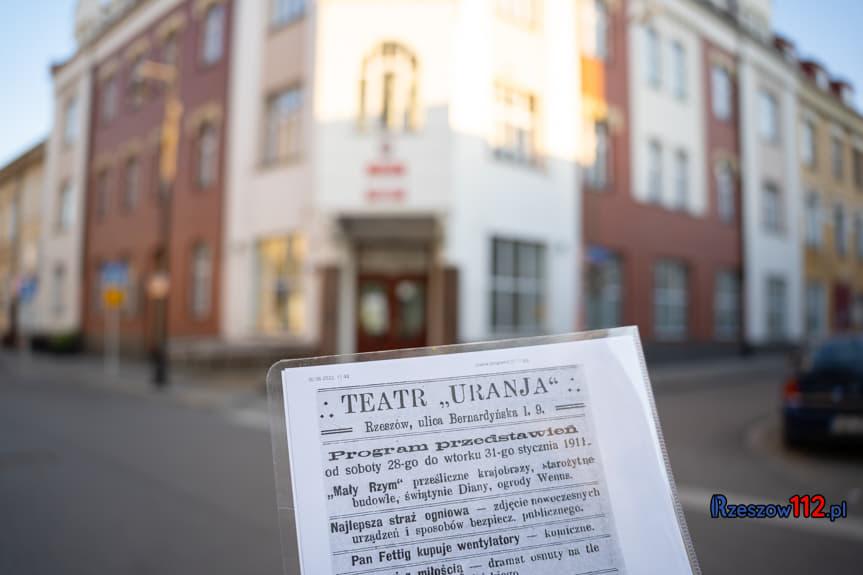 ∴ TEATR „URANJA“ ∴
Rzeszów, ulica Bernardyńska l. 9.
Program przedstawień
od soboty 28-go do wtorku 31-go stycznia 1911.
„Mały Rzym“ prześliczne krajobrazy, starożytne
budowle, świątynie Diany, ogrody Wenus.
Najlepsza straż ogniowa — zdjęcie nowoczesnych
urządzeń i sposobów bezpiecz. publicznego.
Pan Fettig kupuje wentylatory — komiczne.
miłością — dramat osnuty na tle
Rzeszow112.pl